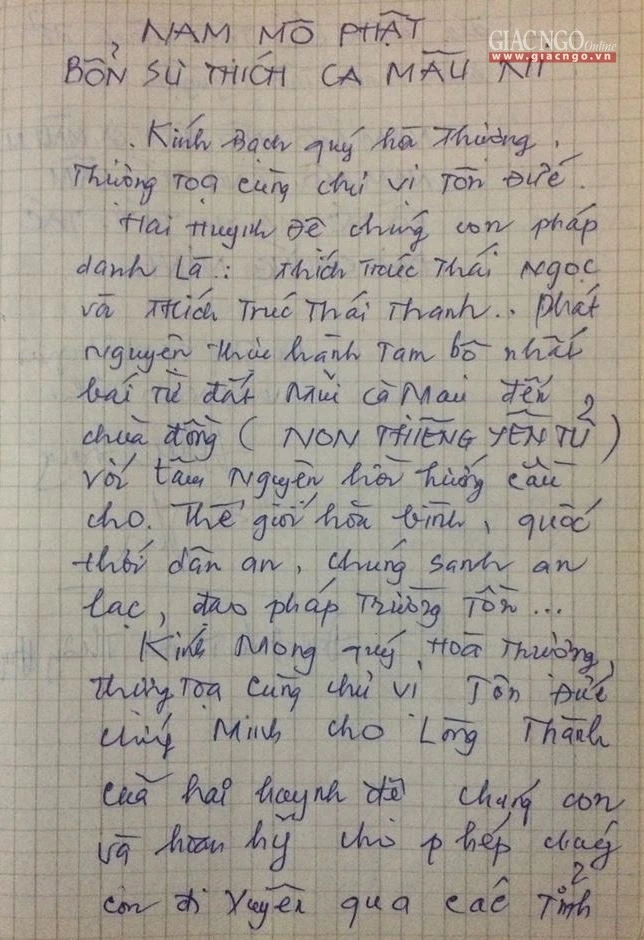 NAM MÔ PHẬT
BỔN SƯ THÍCH CA MÂU NI
GIACNGO Online
www.giacngo.vn
. Kính Bạch quý hòa Thượng,
Thượng Tọa cùng chư vị Tôn Đức.
Hai Huynh Đệ chúng con pháp
danh Là: Thích Trúc Thái Ngọc
và Thích Trúc Thái Thanh.. phát
Nguyện thực hành Tam bộ nhất
bái từ đất Mũi Cà Mau đến
chùa đồng ( NON THIÊNG YÊN TỬ )
với tâm Nguyện hồi hướng cầu
cho. Thế giới hòa bình, quốc
thới dân an, chúng sanh an
lạc, đạo pháp Trường Tồn...
Kính Mong quý Hoà Thượng,
Thượng Tọa cùng chư vị Tôn Đức
chứng Minh cho Lòng Thành
của hai huynh đệ chúng con
và hoan hỷ cho phép chúng
con đi xuyên qua các Tỉnh